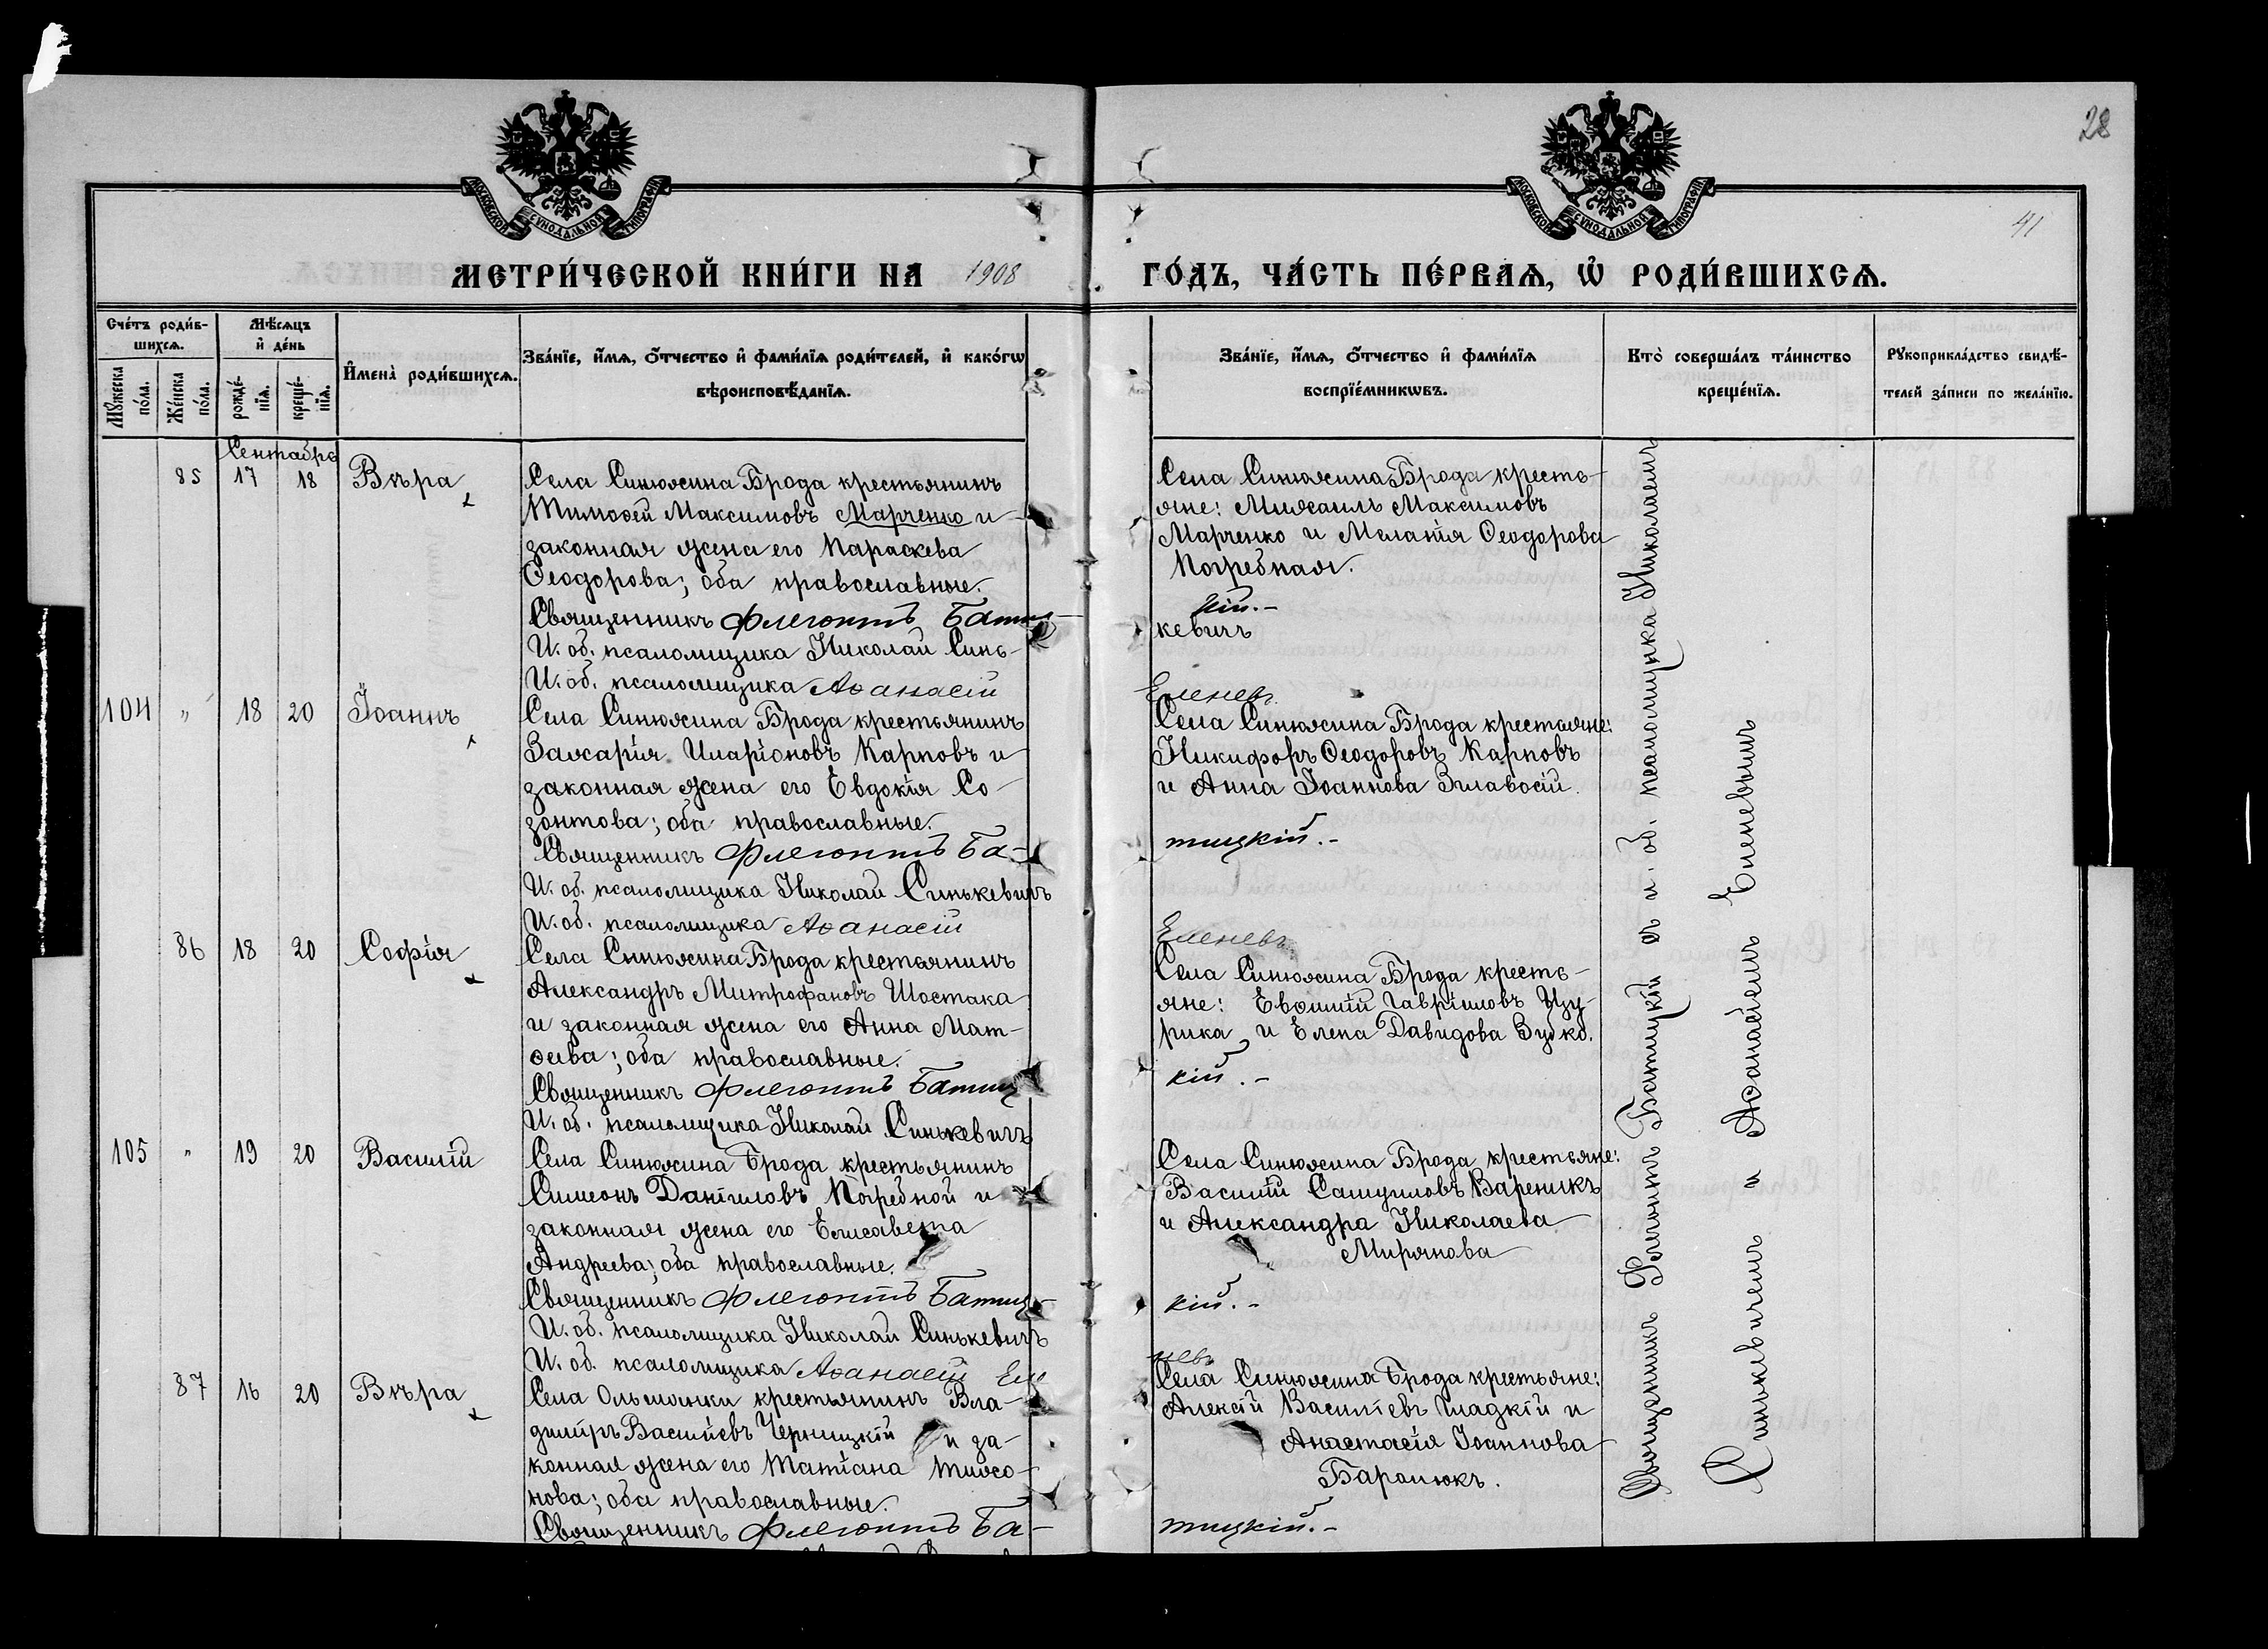 28
41
МОСКОВСКОЙ СѴНОДАЛЬНОЙ ТИПОГРАФІИ
МОСКОВСКОЙ СѴНОДАЛЬНОЙ ТИПОГРАФІИ
МЕТРИ́ЧЕСКОЙ КНИ́ГИ НА 1908 ГО́ДЪ, ЧА́СТЬ ПЕ́РВАѦ, Ѡ҆ РОДИ́ВШИХСѦ.
Сче́тъ роди́в-
шихсѧ.
Мꙋ́жеска по́ла.
Же́нска по́ла.
Мѣ́сѧцъ
и҆ де́нь
рожде́-
нїѧ.
креще́-
нїѧ.
И҆мена̀ роди́вшихсѧ.
Зва́нїе, и҆́мѧ, ѻ҆́тчество и҆ фами́лїѧ роди́телей, и҆ како́гѡ
вѣроисповѣ́данїѧ.
Зва́нїе, и҆́мѧ, ѻ҆́тчество и҆ фами́лїѧ
воспрїе́мникѡвъ.
Кто̀ соверша́лъ та́инство
креще́нїѧ.
Рꙋкоприкла́дство свидѣ́-
телей за́писи по жела́нїю.
Сентабрь
85 17 18 Вѣра
Села Синюхина Брода крестьянинъ
Тимоѳей Максимовъ Марченко и
законная жена его Параскева
Ѳеодорова; оба православные.
Священникъ Флегонтъ Батиц-
И. об. псаломщика Николай Синь-
И. об. псаломщика Аѳанасій
Села Синюхина Брода кресть-
яне: Михаилъ Максимовъ
Марченко и Меланія Ѳеодорова
Погребная.
кій.-
кевичъ
Еленев
104 " 18 20 Іоаннъ
Села Синюхина Брода крестьянинъ
Захарія Иларіоновъ Карповъ и
законная жена его Евдокія Со-
зонтова; оба православные.
Священникъ Флегонтъ Ба-
И. об. псаломщика Николай Синькевичъ
И. об. псаломщика Аѳанасій
Села Синюхина Брода крестьяне:
Никифоръ Ѳеодоровъ Карповъ
и Анна Іоаннова
тицкій.-
Еленевъ
86 18 20 Софія
Села Синюхина Брода крестьянинъ
Александръ Митрофановъ Шостака
и законная жена его Анна Мат-
ѳеева; оба православные.
Священникъ Флегонтъ Батиц
И. об. псаломщика Николай Синькевичъ
Села Синюхина Брода кресть-
яне: Евѳимій Гавріиловъ Цу-
рика и Елена Давидова Зубко.
кій.-
105 " 19 20 Василій
Села Синюхина Брода крестьянинъ
Симеонъ Даніиловъ Погребной и
законная жена его Елисавета
Андреева; оба православные.
Священникъ Флегонтъ Батиц-
И. об. псаломщика Николай Синькевичъ
И. об. псаломщика Аѳанасій Еле
Села Синюхина Брода крестьяне:
Василій Самуиловъ Вареникъ
и Александра Николаева
Мирянова
кій.-
невъ
87 16 20 Вѣра
Села Ольшанки крестьянинъ Вла-
диміръ Васильевъ Черницкій и за-
конная жена его Татіана Тихо-
нова; оба православные.
Священникъ Флегонтъ Ба-
Села Синюхина Брода крестьяне:
Алексій Васильевъ Гладкій и
Анастасія Іоаннова
Баранюкъ.
тицкій.-
Священникъ Флегонтъ Батицкій съ и. об. псаломщика Николаемъ
Синькевичемъ и Аѳанасіемъ Еленевымъ